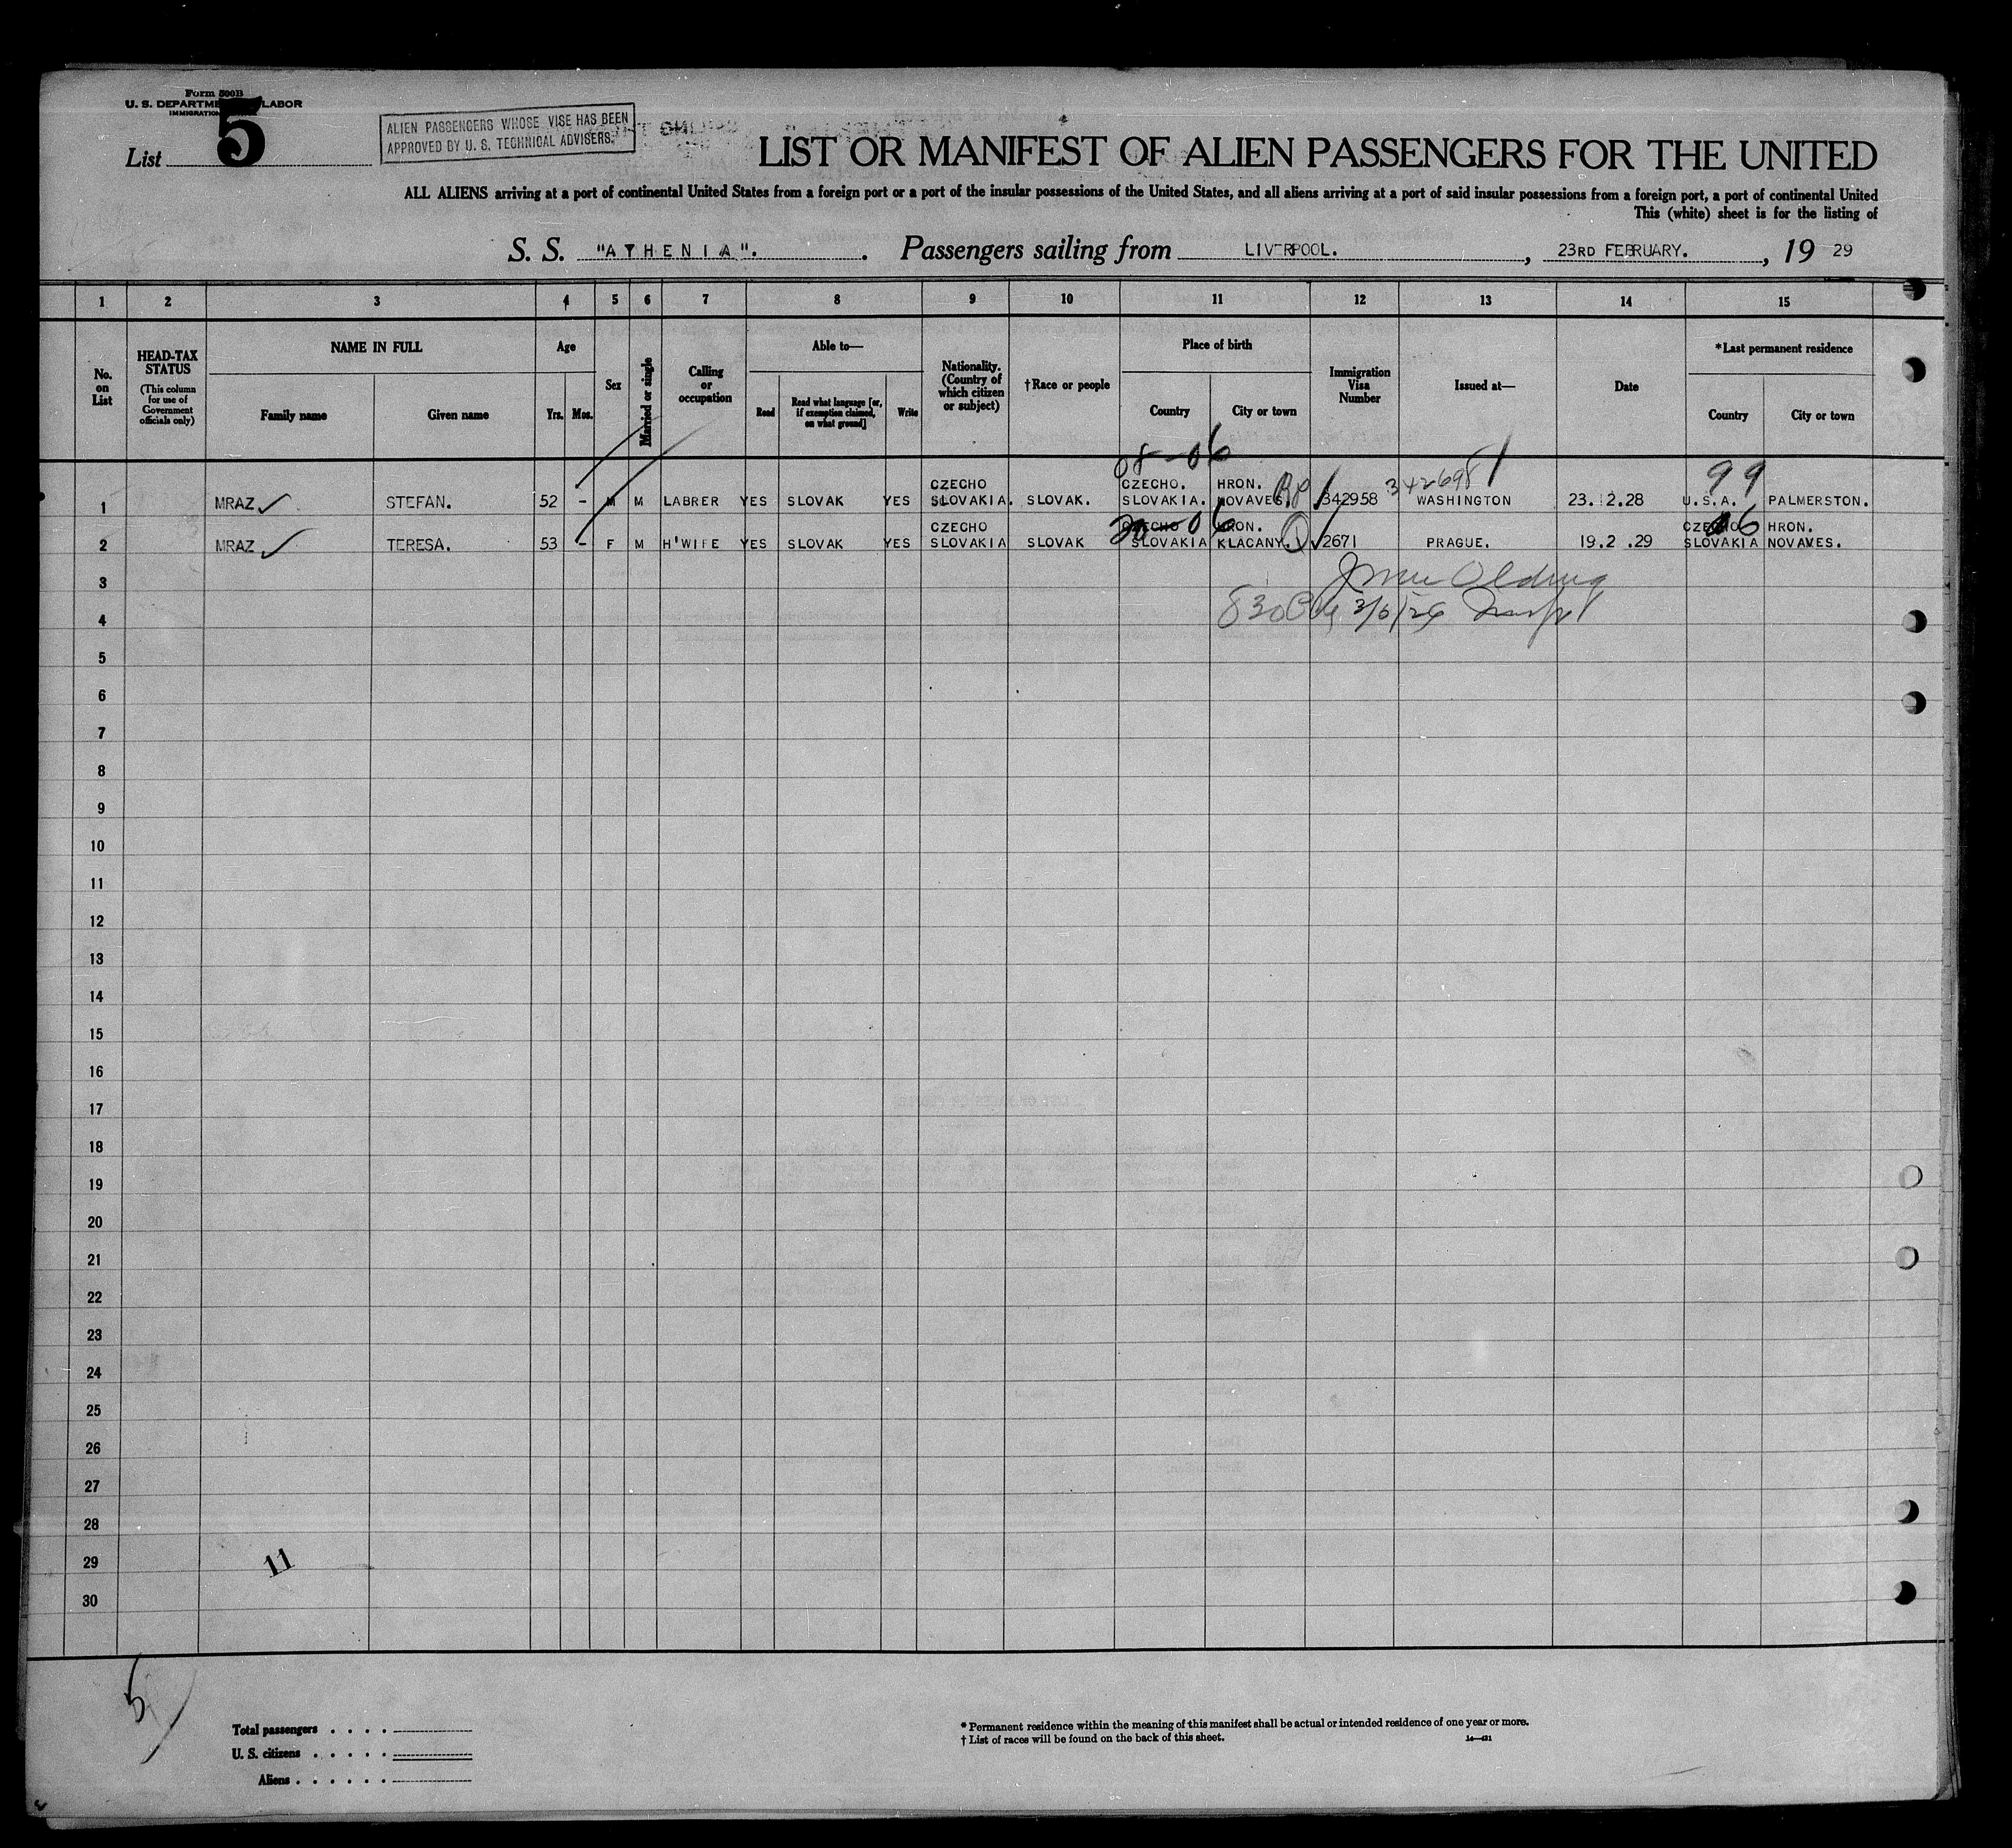 Form 500B
U. S. DEPARTMENT LABOR
IMMIGRATION
List 5
ALIEN PASSENGERS WHOSE VISE HAS BEEN
APPROVED BY U. S. TECHNICAL ADVISERS.
LIST OR MANIFEST OF ALIEN PASSENGERS FOR THE UNITED
ALL ALIENS arriving at a port of continental United States from a foreign port or a port of the insular possessions of the United States, and all aliens arriving at a port of said insular possessions from a foreign port, a port of continental United
This (white) sheet is for the listing of
S. S. "ATHENIA". Passengers sailing from LIVERPOOL. , 23RD FEBRUARY. , 19 29
1 2 3 4 5 6 7 8 9 10 11 12 13 14 15
No. on List
HEAD-TAX STATUS
(This column for use of Government officials only)
NAME IN FULL
Family name
Given name
Age
Yrs.
Mos.
Sex
Married or single
Calling or occupation
Able to—
Read
Read what language [or, if exemption claimed, on what ground]
Write
Nationality. (Country of which citizen or subject)
†Race or people
Place of birth
Country
City or town
Immigration Visa Number
Issued at—
Date
*Last permanent residence
Country
City or town
08-06
342698
99
1 MRAZ STEFAN. 52 - M M LABRER YES SLOVAK YES CZECHO SLOVAKIA. SLOVAK. CZECHO. SLOVAKIA. HRON. NOVAVES. 342958 WASHINGTON 23.12.28 U.S.A. PALMERSTON.
20-06
06
2 MRAZ TERESA. 53 - F M H'WIFE YES SLOVAK YES CZECHO SLOVAKIA SLOVAK CZECHO SLOVAKIA HRON. KLACANY. 2671 PRAGUE. 19.2 .29 CZECHO SLOVAKIA HRON. NOVAVES.
3
4
5
6
7
8
9
10
11
12
13
14
15
16
17
18
19
20
21
22
23
24
25
26
27
28
29 11
30
5
Total passengers . . . .
U. S. citizens . . . . .
Aliens . . . . . .
* Permanent residence within the meaning of this manifest shall be actual or intended residence of one year or more.
† List of races will be found on the back of this sheet.
14—431